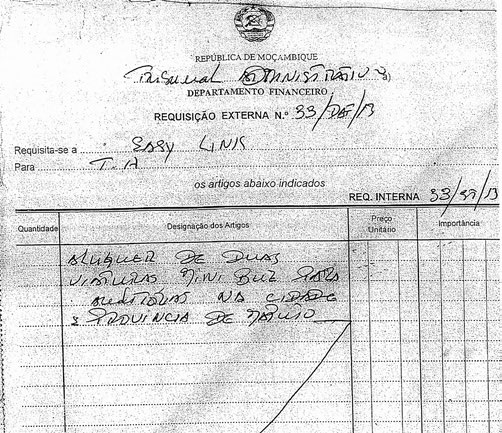 REPÚBLICA DE MOÇAMBIQUE
Tribunal Administrativo a)
DEPARTAMENTO FINANCEIRO
REQUISIÇÃO EXTERNA N.º 33/DAF/13
Requisita-se a EASY LINK
Para T.A
os artigos abaixo indicados
REQ. INTERNA 33/ /13
Quantidade Designação dos Artigos Preço Unitário Importância
ALUGUER DE DUAS
VIATURAS MINI BUZ PARA
AUDITORIAS NA CIDADE
E PROVINCIA DE MAPUTO